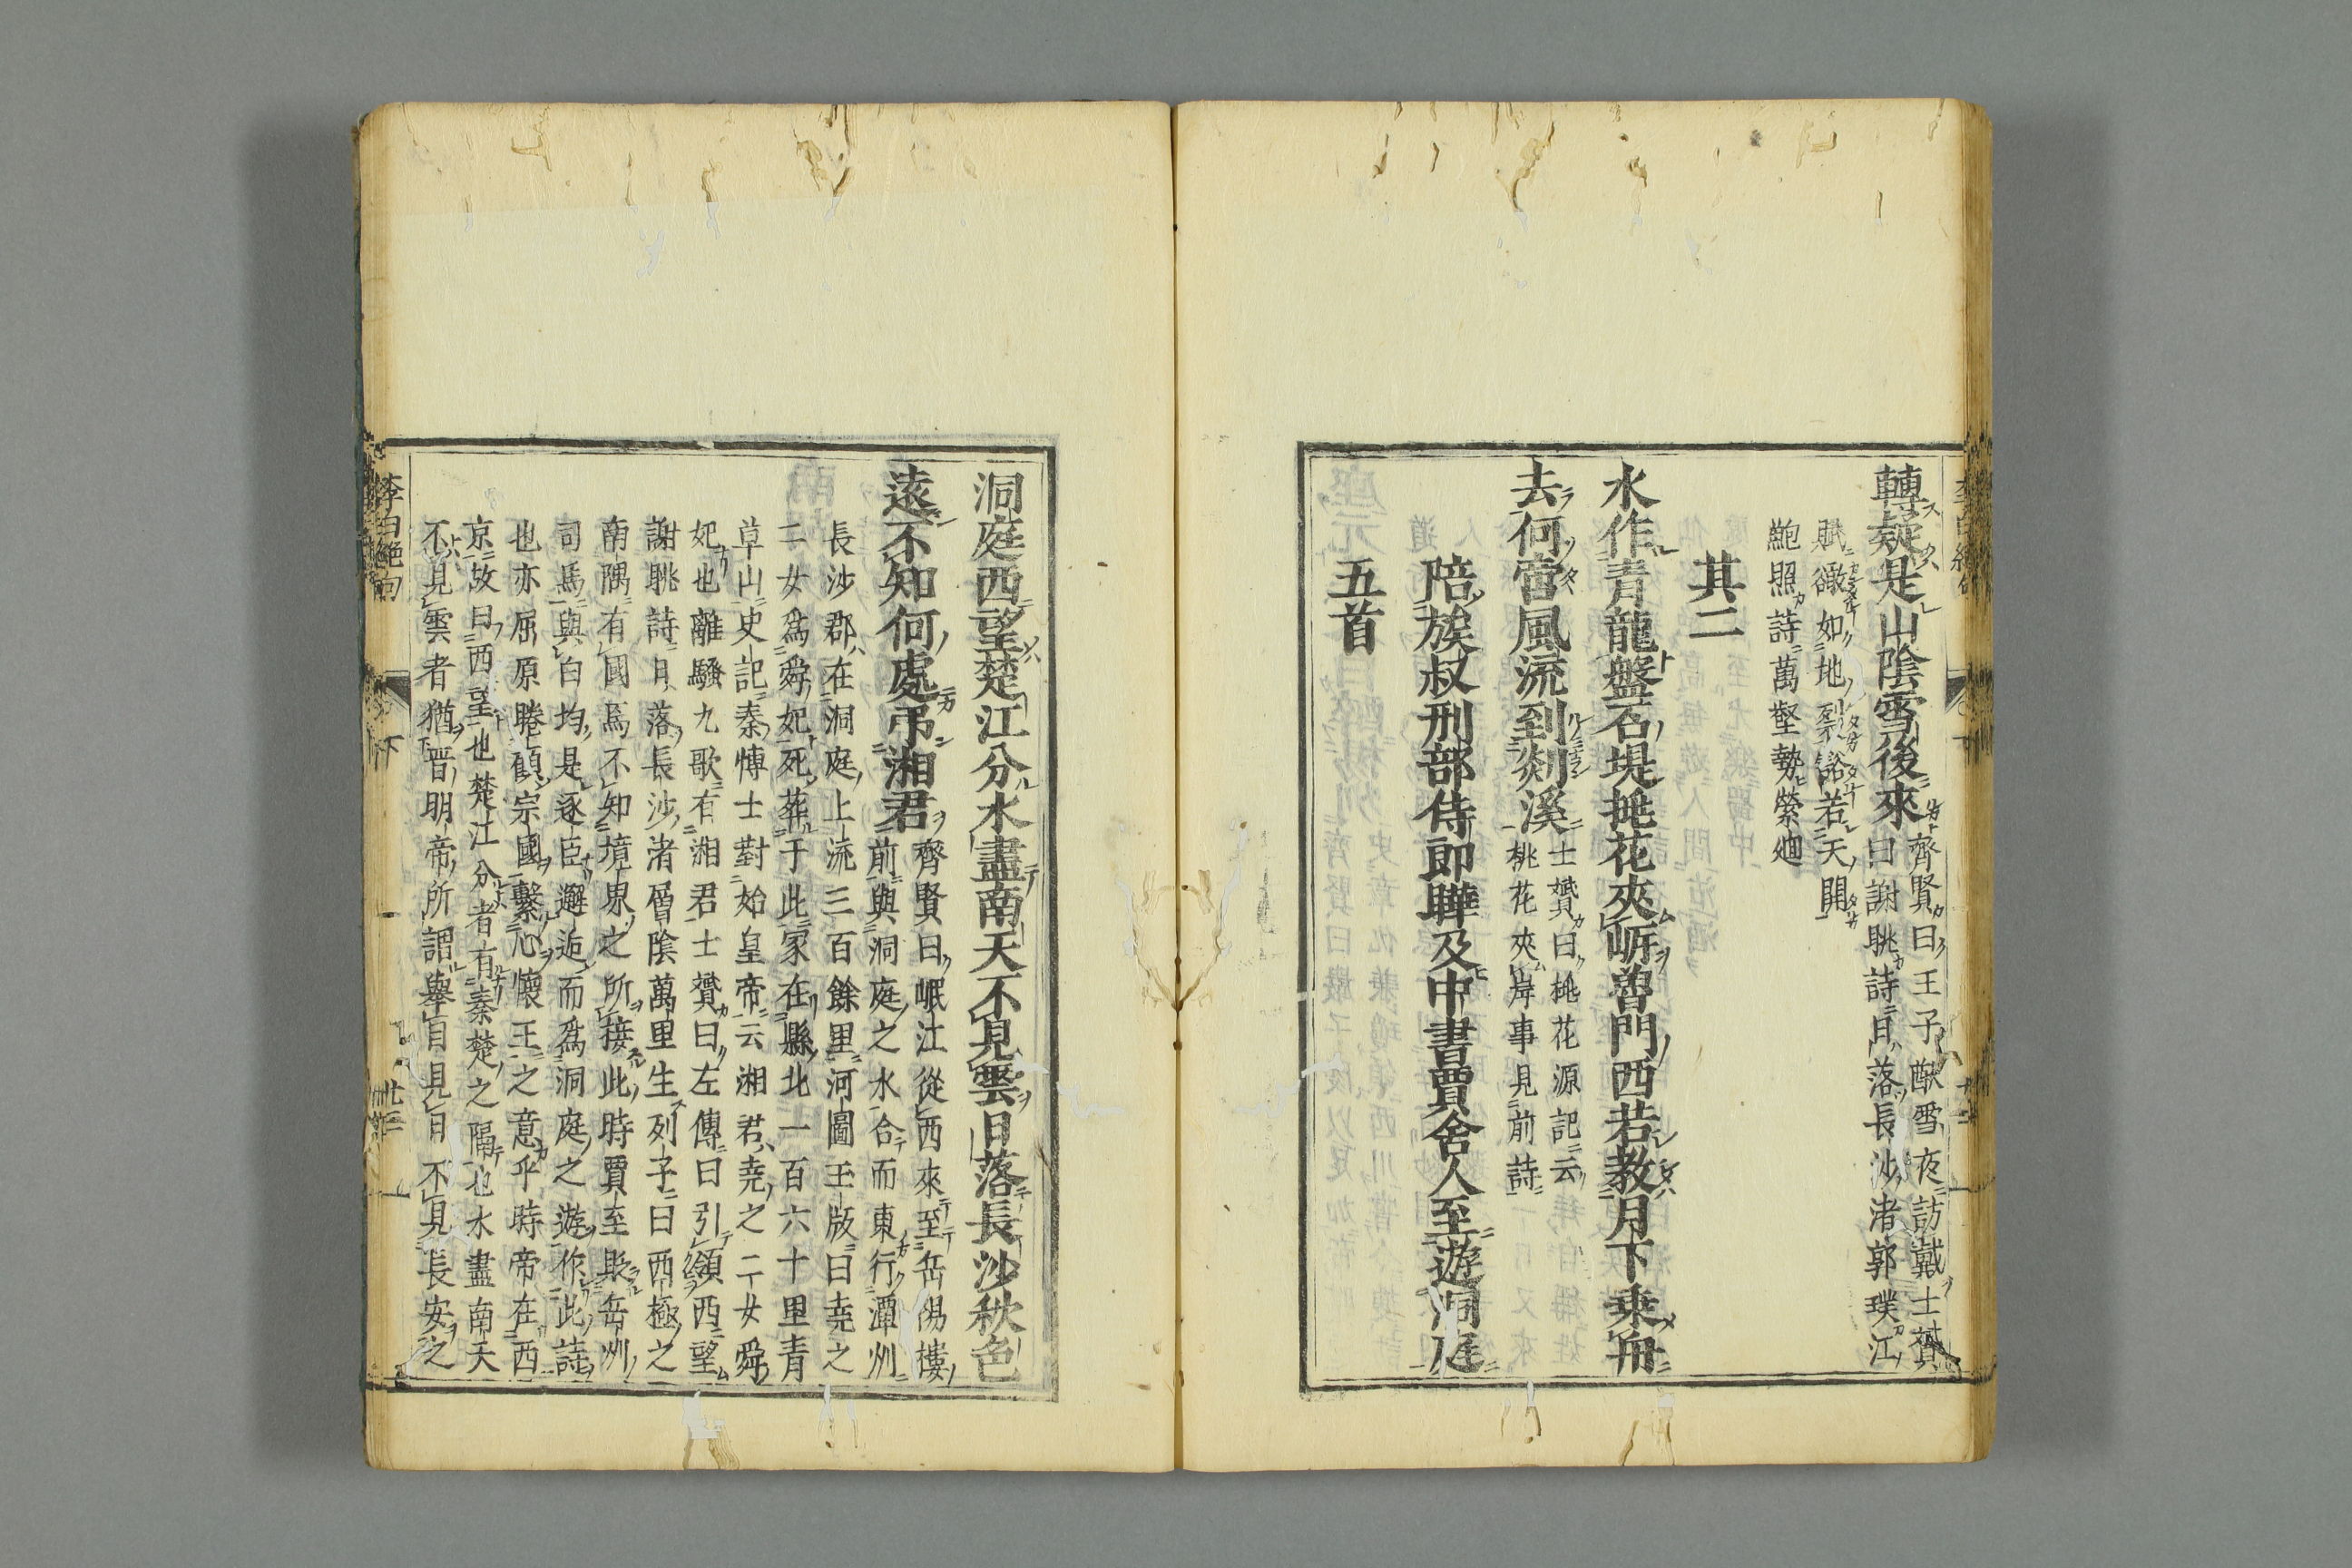 轉疑是山陰雪後來
齊賢曰王子猷雪夜訪戴士贇
曰謝眺詩日落長沙渚郭璞江
賦㵎如地裂豁若天開
鮑照詩萬壑勢縈廻
其二
水作青龍盤石堤桃花夾岍魯門西若教月下乘舟
去何啻風流到剡溪
士贇曰桃花源記云
桃花夾岸事見前詩
陪族叔刑部侍郎曄及中書賈舍人至遊洞庭
五首
洞庭西望楚江分水盡南天不見雲日落長沙秋色
遠不知何處弔湘君
齊賢曰岷江從西來至岳陽樓
前與洞庭之水合而東行潭州
長沙郡在洞庭上流三百餘里河圖玉版曰堯之
二女爲舜妃死葬于此冢在縣北一百六十里青
草山史記秦博士對始皇帝云湘君堯之二女舜
妃也離騷九歌有湘君士贇曰左傳曰引領西望
謝眺詩日落長沙渚層陰萬里生列子曰西極之
南隅有國焉不知境界之所接此時賈至貶岳州
司馬與白均是逐臣邂逅而爲洞庭之遊作此詩
也亦屈原睠顧宗國繫心懷王之意乎時帝在西
京故曰西望也楚江分者有秦楚之隔也水盡南天
不見雲者猶晋明帝所謂舉目見日不見長安之
李白絶句
下